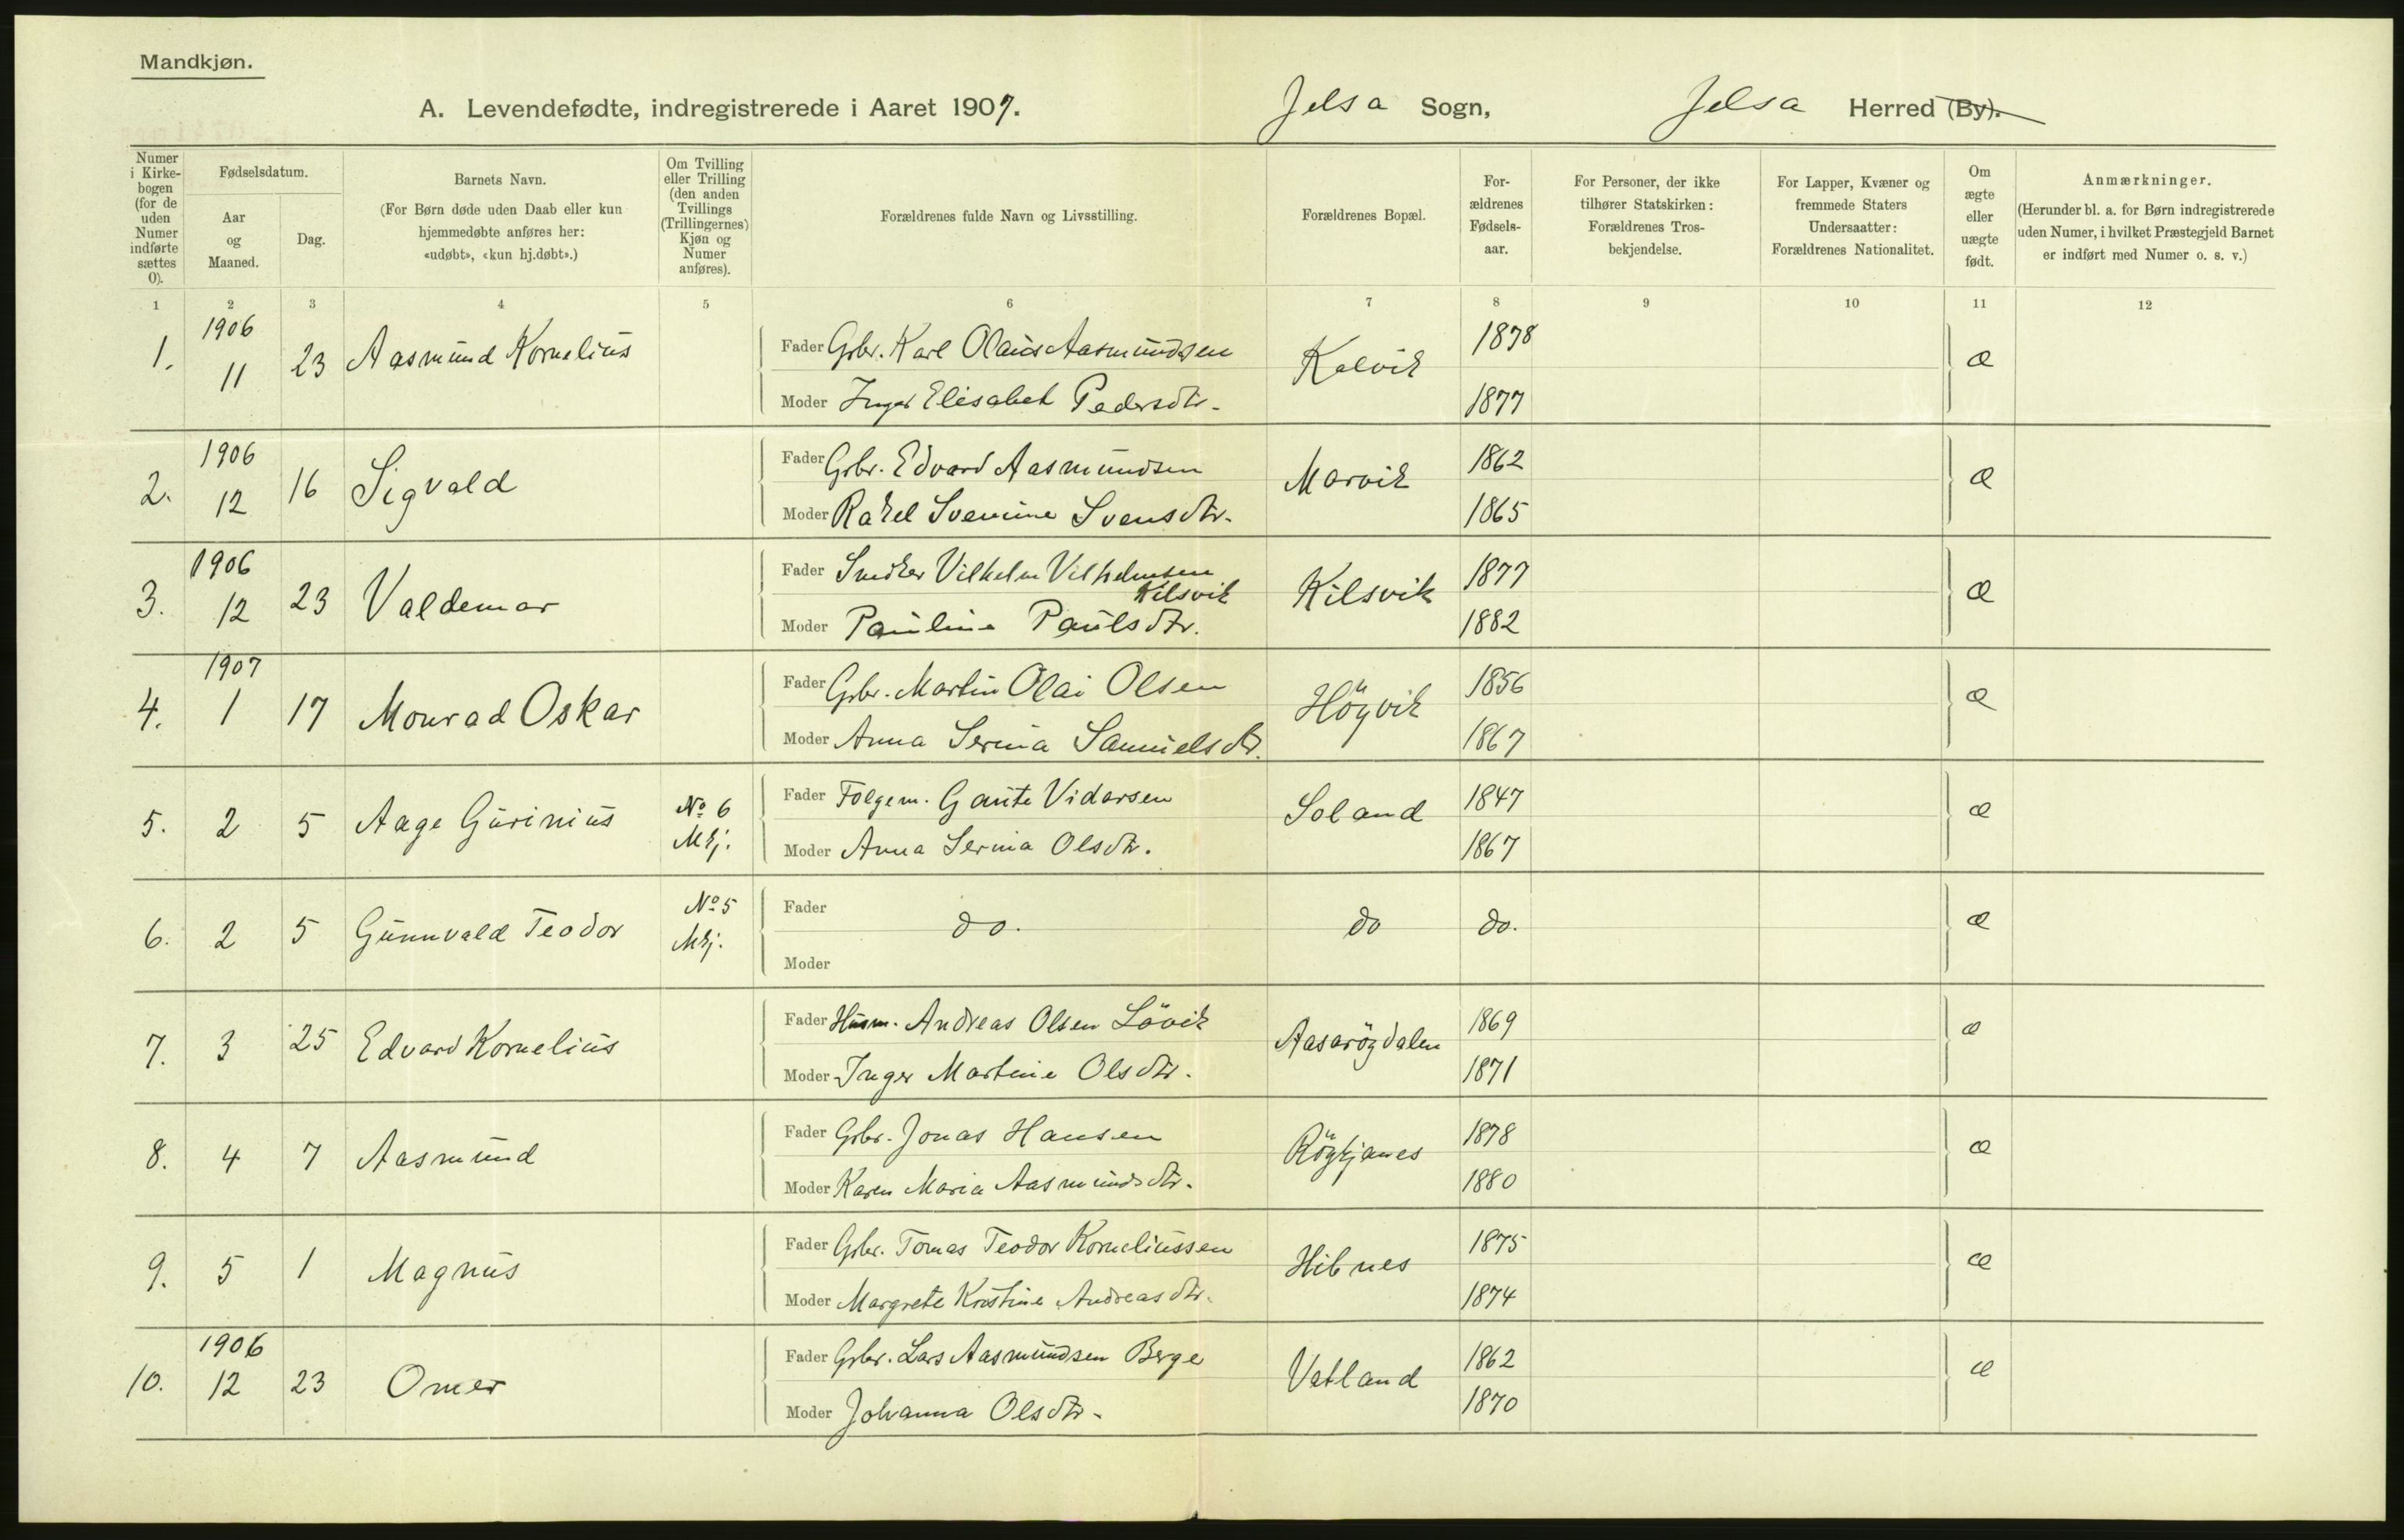 Mandkjøn.
A. Levendefødte, indregistrerede i Aaret 1907. Jelsa Sogn, Jelsa Herred (By).
Numer i Kirkebogen (for de uden Numer indførte sættes 0).
Fødselsdatum.
Aar og Maaned.
Dag.
Barnets Navn.
(For Børn døde uden Daab eller kun hjemmedøbte anføres her: «udøbt», «kun hj.døbt».)
Om Tvilling eller Trilling (den anden Tvillings (Trillingernes) Kjøn og Numer anføres).
Forældrenes fulde Navn og Livsstilling.
Forældrenes Bopæl.
For-ældrenes Fødsels-aar.
For Personer, der ikke tilhører Statskirken: Forældrenes Tros-bekjendelse.
For Lapper, Kvæner og fremmede Staters Undersaatter: Forældrenes Nationalitet.
Om ægte eller uægte født.
Anmærkninger.
(Herunder bl. a. for Børn indregistrerede uden Numer, i hvilket Præstegjeld Barnet er indført med Numer o. s. v.)
1 2 3 4 5 6 7 8 9 10 11 12
1. 1906 11 23 Aasmund Kornelius Fader Gbr. Karl Olaus Aasmundsen Kalvik 1878 æ
Moder Inger Elisabet Pedersdtr. 1877
2. 1906 12 16 Sigvald Fader Gbr. Edvard Aasmundsen Marvik 1862 æ
Moder Rakel Svenine Svensdtr. 1865
3. 1906 12 23 Valdemar Fader Snedker Vilhelm Vilhelmsen Kilsvik Kilsvik 1877 æ
Moder Pauline Paulsdtr. 1882
4. 1907 1 17 Monrad Oskar Fader Gbr. Martin Olai Olsen Högvik 1856 æ
Moder Anna Serina Samuelsdtr. 1867
5. 2 5 Aage Gurinius No 6 Mkj. Fader Folgem. Gaute Vidarsen Soland 1847 æ
Moder Anna Serina Olsdtr. 1867
6. 2 5 Gunnvald Teodor No 5 Mkj. Fader do. do do. æ
Moder
7. 3 25 Edvard Kornelius Fader Husm. Andreas Olsen Lövik Aasarögdalen 1869 æ
Moder Inger Martine Olsdtr. 1871
8. 4 7 Aasmund Fader Gbr. Jonas Hansen Rögkjanes 1878 æ
Moder Karen Maria Aasmundsdtr. 1880
9. 5 1 Magnus Fader Gbr. Tomas Teodor Korneliussen Hibnes 1875 æ
Moder Margrete Kristine Andreasdtr. 1874
10. 1906 12 23 Omer Fader Gbr. Lars Aasmundsen Berge Vatland 1862 æ
Moder Johanna Olsdtr. 1870